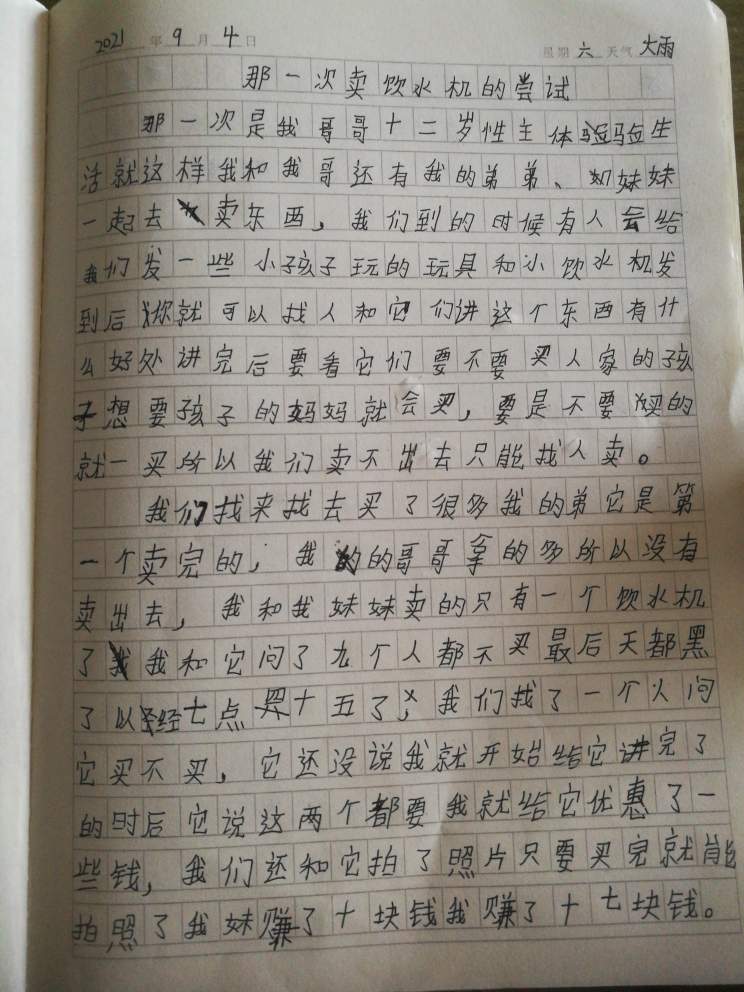 2021年9月4日 星期六 天气大雨
那一次卖饮水机的尝试
那一次是我哥哥十二岁性主体验验生
活就这样我和我哥还有我的弟弟、如妹妹
一起去卖东西，我们到的时候有人会给
我们发一些小孩子玩的玩具和小饮水机发
到后你就可以找人和它们讲这个东西有什
么好处讲完后要看它们要不要买人家的孩
子想要孩子的妈妈就会买，要是不要买的
就一买所以我们卖不出去只能找人卖。
我们找来找去买了很多我的弟它是第
一个卖完的，我的哥哥拿的多所以没有
卖出去，我和我妹妹卖的只有一个饮水机
了我和它问了九个人都不买最后天都黑
了以经七点四十五了，我们找了一个人问
它买不买，它还没说我就开始给它讲完了
的时后它说这两个都要我就给它优惠了一
些钱，我们还和它拍了照片只要买完就能
拍照了我妹赚了十块钱我赚了十七块钱。